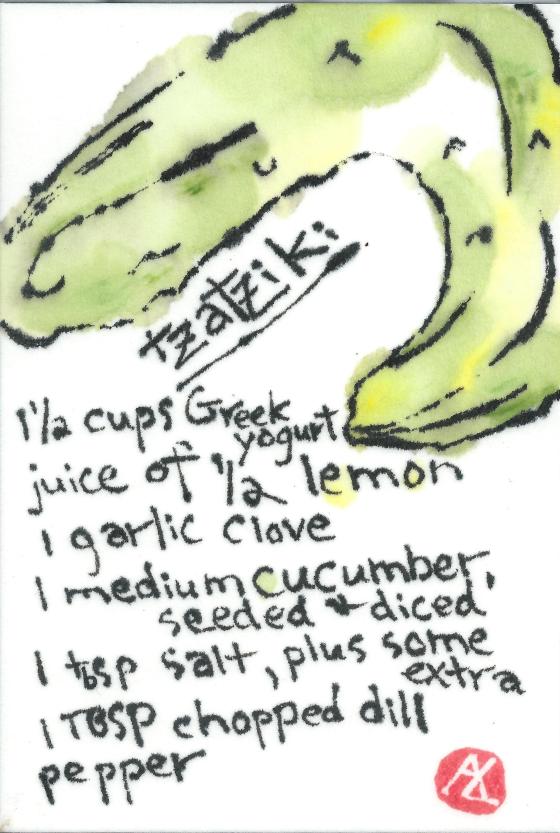 tzatziki
1 1/2 cups Greek
yogurt
juice of 1/2 lemon
1 garlic clove
1 medium cucumber,
seeded & diced
1 tbsp salt, plus some
extra
1 TBSP chopped dill
pepper